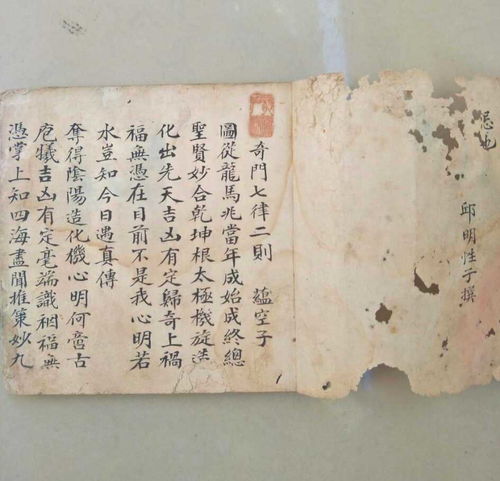 忌也
邱明性子撰
奇門七律二則 蘊空子
圖從龍馬兆當年成始成終總
聖賢妙合乾坤根太極機旋造
化出先天吉凶有定歸奇上禍
福無憑在目前不是我心明若
水豈知今日遇真傳
奪得陰陽造化機心明何啻古
庖犧吉凶有定毫端識禍福無
憑掌上知四海盡聞推策妙九